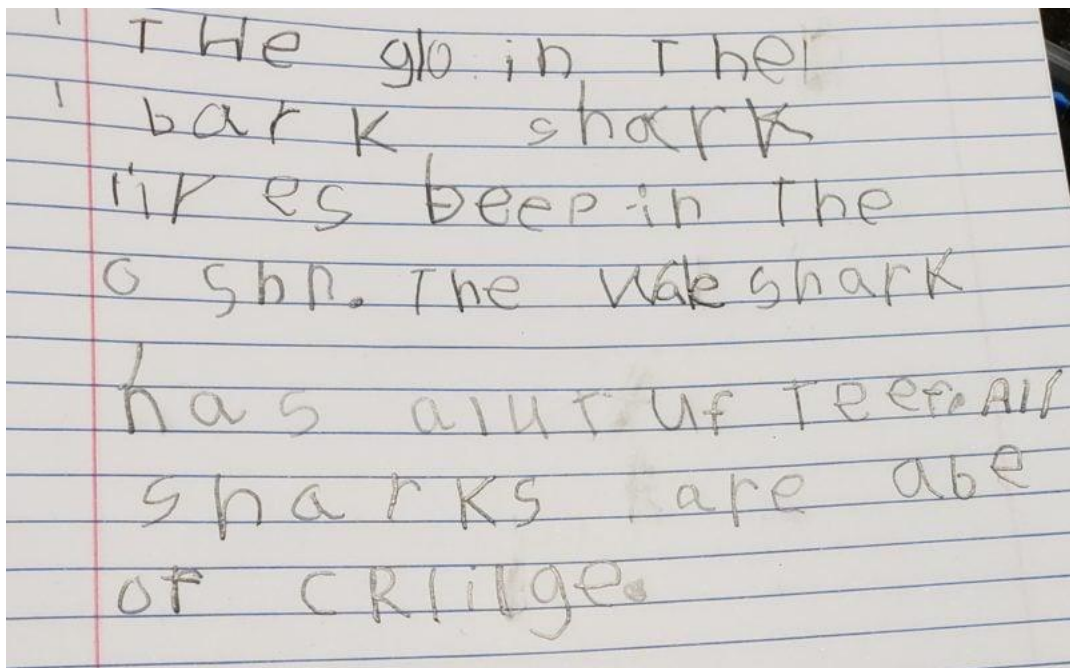 THe glo in The
bark shark
lives beep in The
o shn. The Wale shark
has alut uf Teef. All
sharks are abe
of CRlilge.